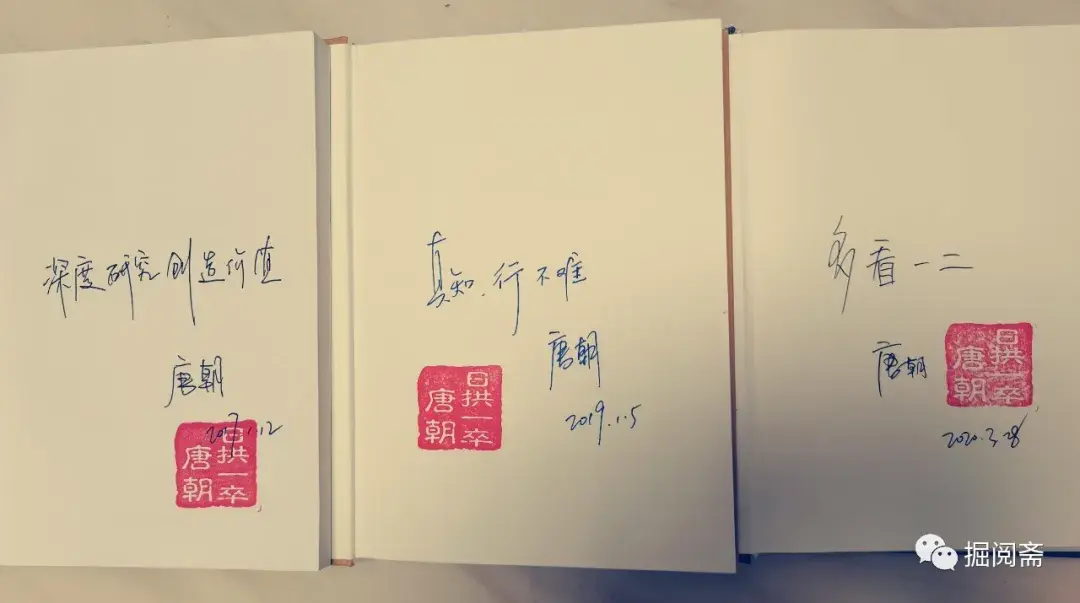 深度研究创造价值
唐朝
2017.1.12
日拱一卒
唐朝
真知.行不难
唐朝
2019.1.5
日拱一卒
唐朝
多看一二
唐朝
2020.3.28
日拱一卒
唐朝
掘阅斋